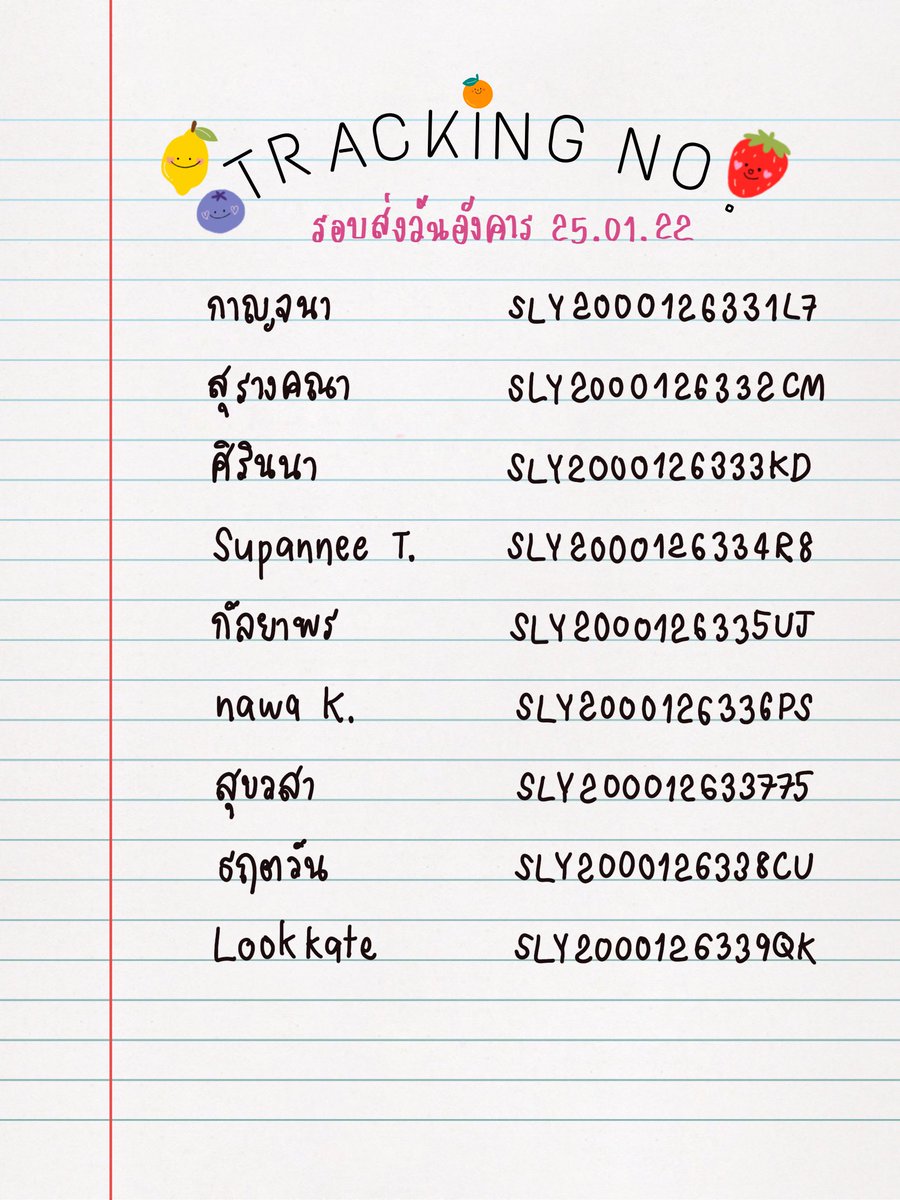 TRACKING NO.
รอบส่งวันอังคาร 25.01.22
กาญจนา SLY2000126331L7
สุรางคณา SLY2000126332CM
ศิรินนา SLY2000126333KD
Supannee T. SLY2000126334R8
กัลยาพร SLY2000126335UJ
nawa K. SLY2000126336PS
สุขวสา SLY200012633775
ธฤตวัน SLY2000126338CU
Lookkate SLY2000126339QK